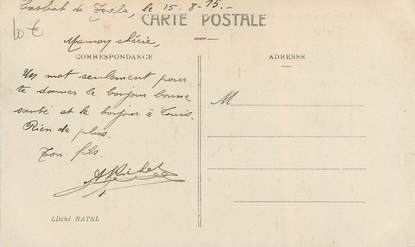 Kasbah de Tadla, le 15-8-15.-
CARTE POSTALE
10 €
Maman chérie,
CORRESPONDANCE
ADRESSE
Un mot seulement pour
te donner le bonjour bonne
santé et le bonjour à Louis.
Rien de plus.
Ton fils.
M
Cliché RATEL